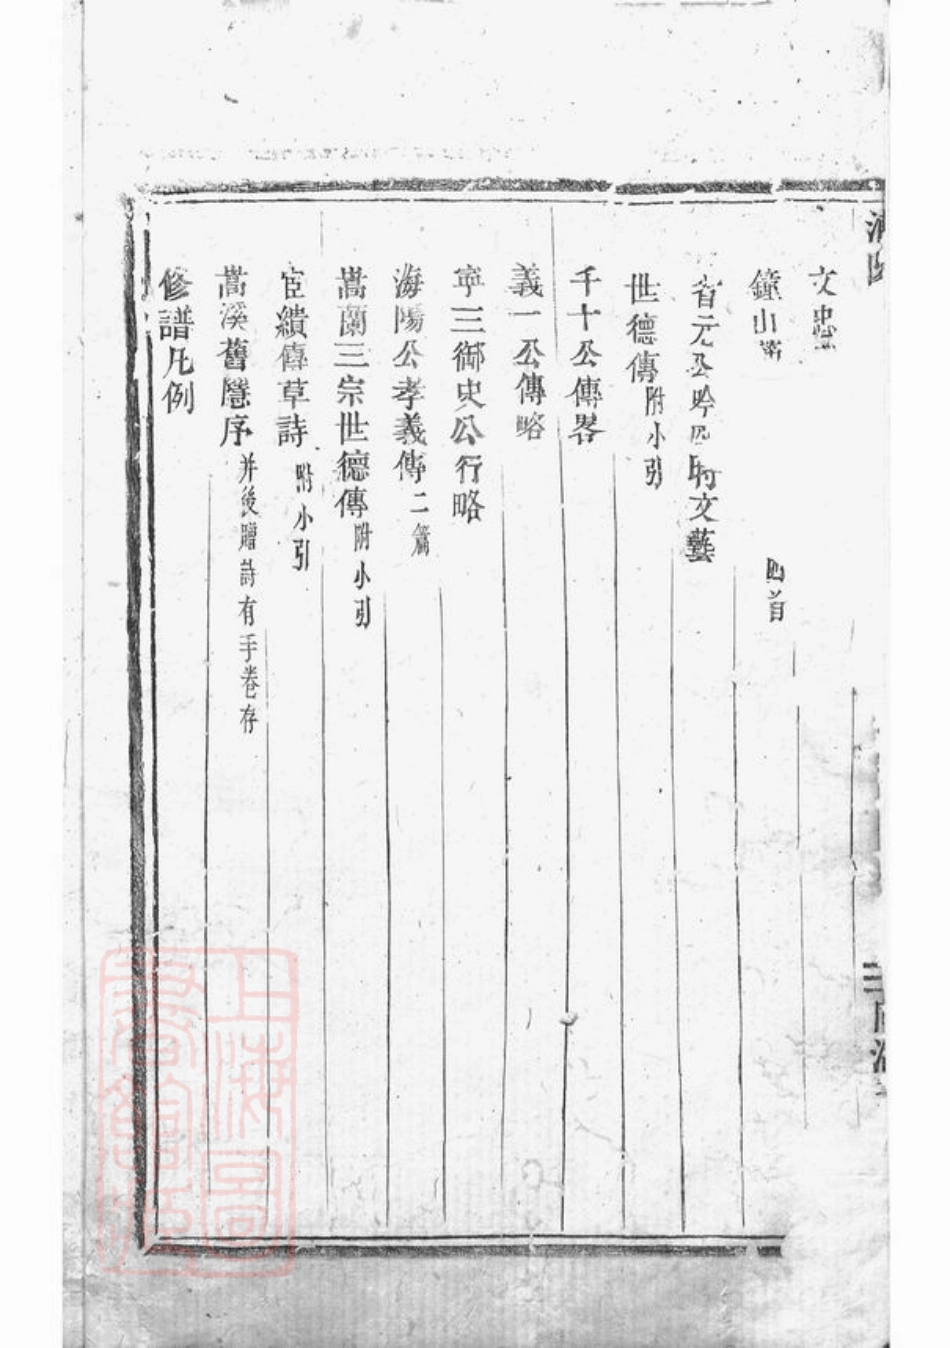 文忠
鐘山 四首
省元公吟 時文藝
世德傳附小引
千十公傳畧
義一公傳略
寧三御史公行略
海陽公孝義傳二篇
嵩蘭三宗世德傳附小引
宦績傳草詩附小引
嵩溪舊隱序并後贈詩有手卷存
修譜凡例
上海圖書館藏